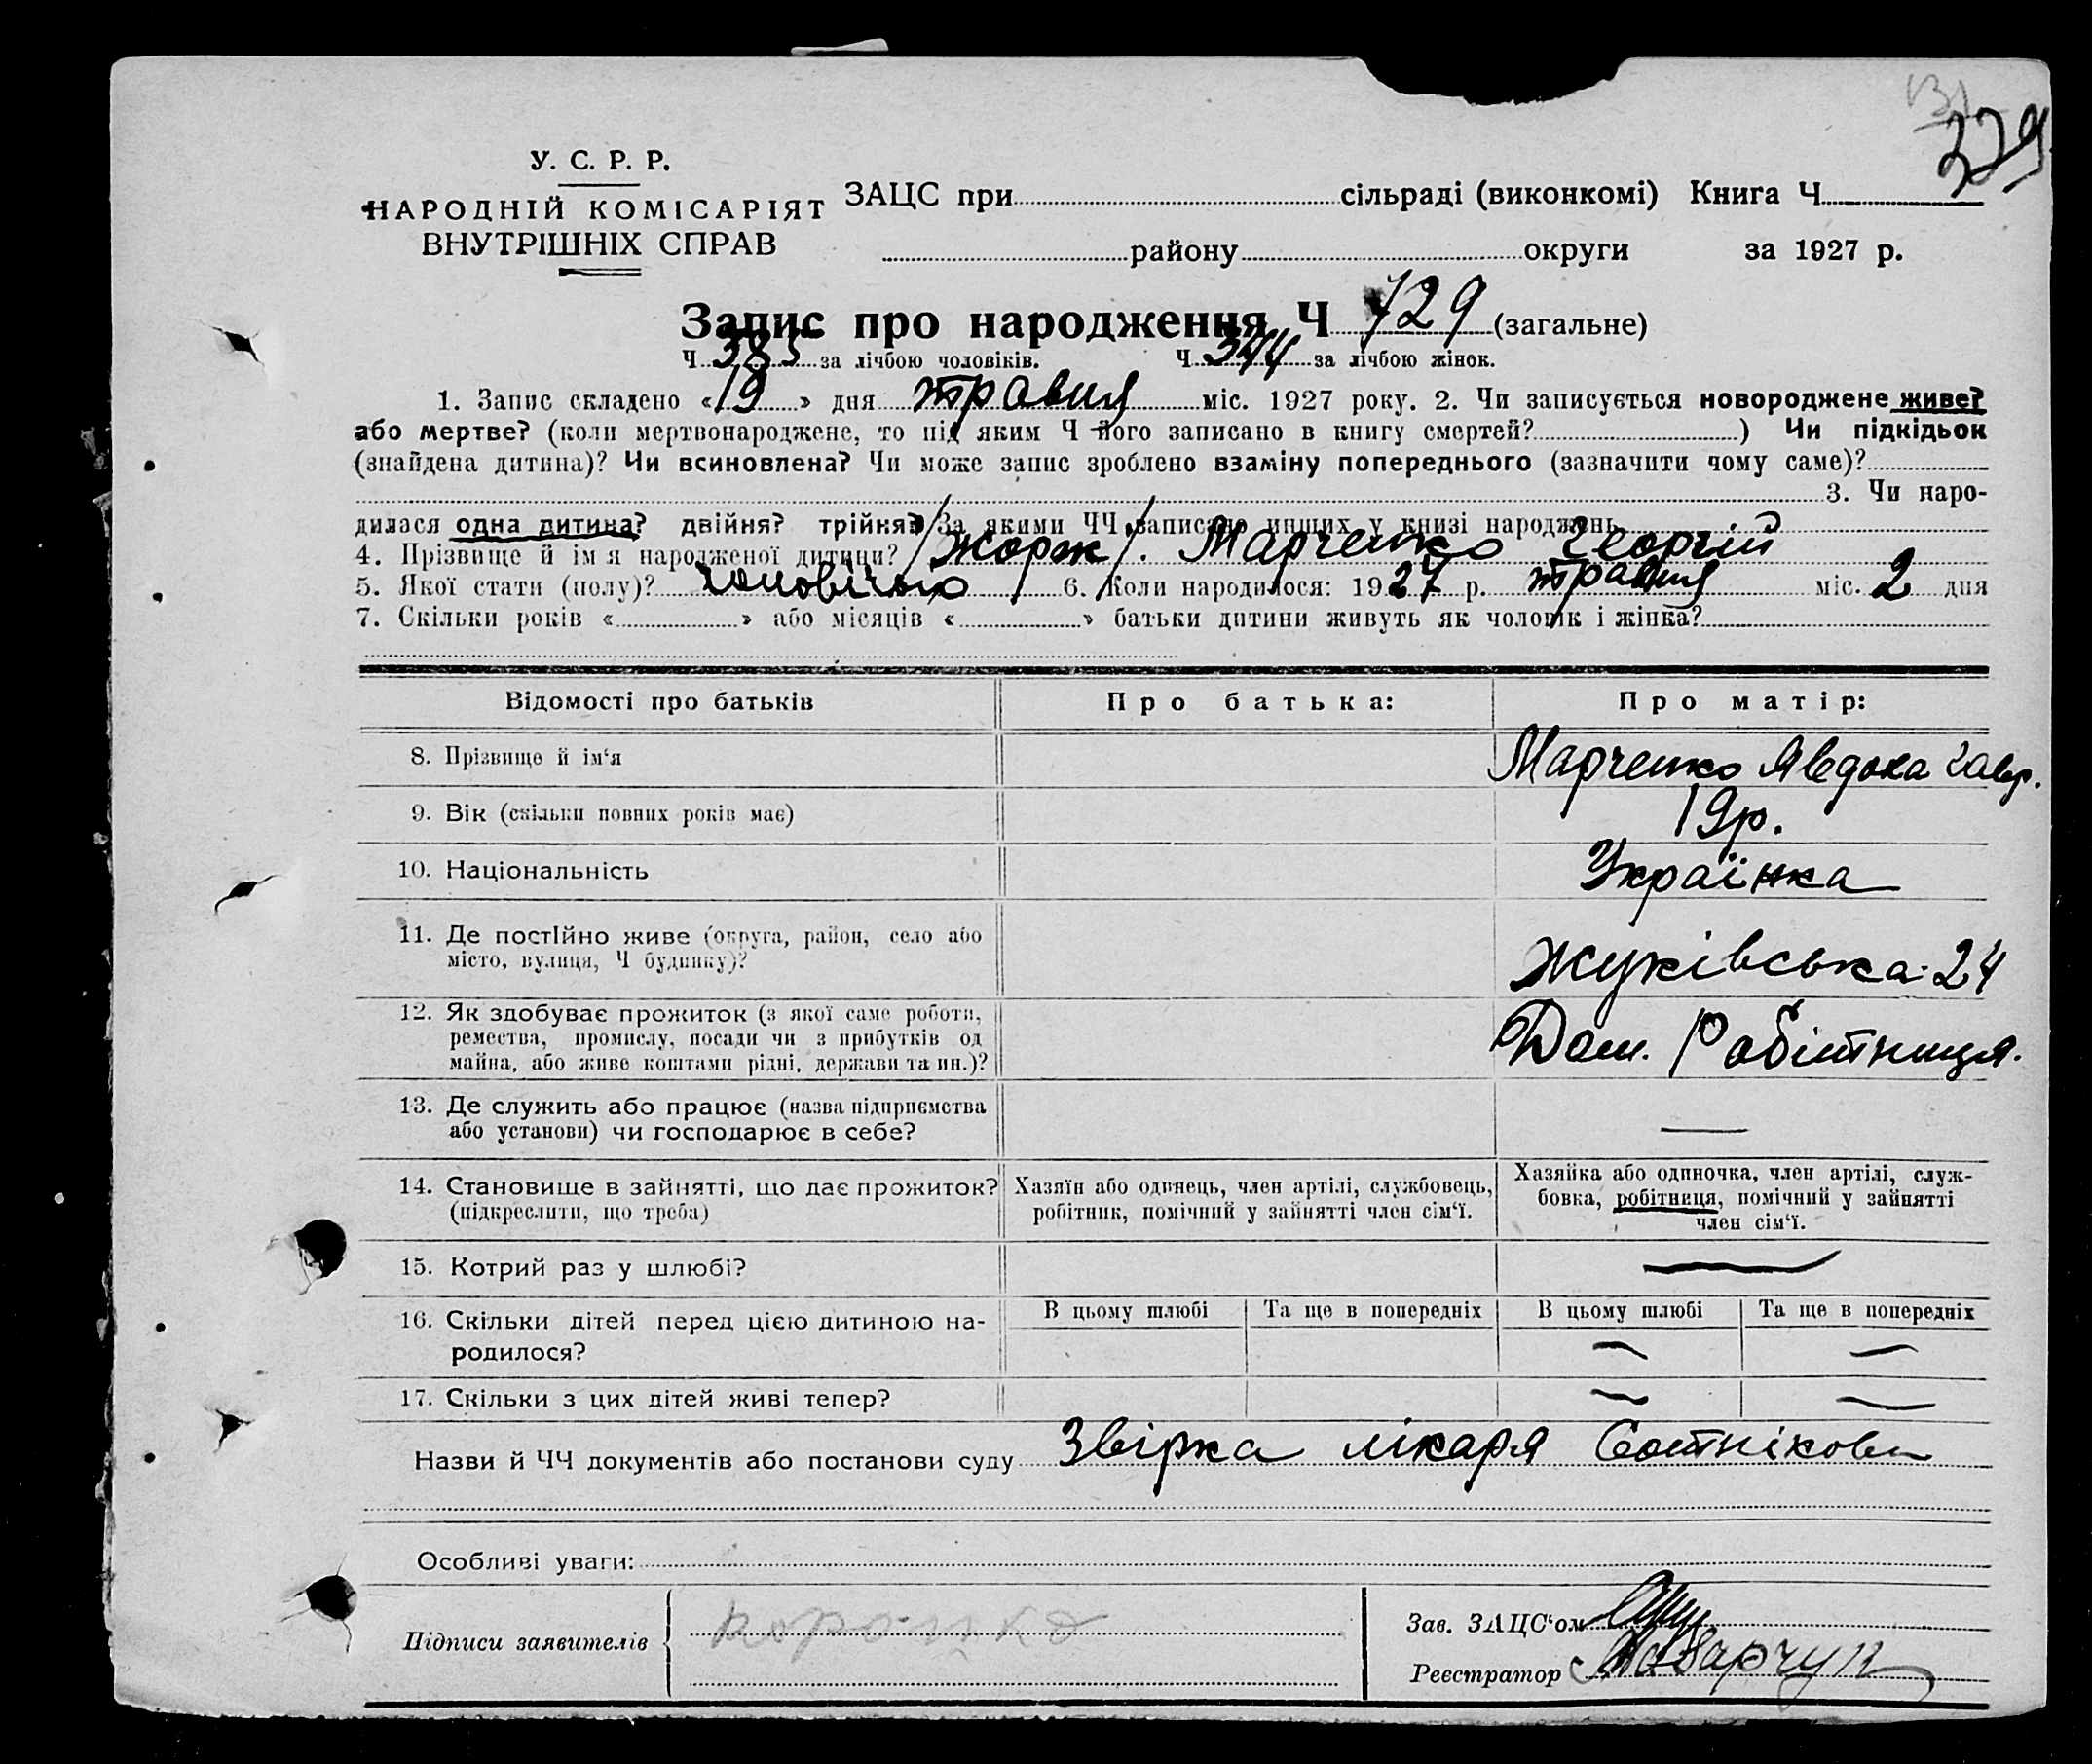 229
У. С. Р. Р.
НАРОДНІЙ КОМІСАРІЯТ
ВНУТРІШНІХ СПРАВ
ЗАЦС при сільраді (виконкомі) Книга Ч
району округи за 1927 р.
Запис про народження Ч 729 (загальне)
Ч 385 за лічбою чоловіків. Ч 344 за лічбою жінок.
1. Запис складено «19» дня травня міс. 1927 року. 2. Чи записується новороджене живе?
або мертве? (коли мертвонароджене, то під яким Ч його записано в книгу смертей? ) Чи підкідьок
(знайдена дитина)? Чи всиновлена? Чи може запис зроблено взаміну попереднього (зазначити чому саме)?
3. Чи наро-
дилася одна дитина? двійня? трійня? За якими ЧЧ записано инших у книзі народжень
4. Прізвище й ім я народженої дитини? /Жорж/. Марченко Георгій
5. Якої стати (полу)? чоловічою 6. Коли народилося: 1927 р. травня міс. 2 дня
7. Скільки років « » або місяців « » батьки дитини живуть як чоловік і жінка?
Відомості про батьків Про батька: Про матір:
8. Прізвище й ім‘я Марченко Явдоха Гавр.
9. Вік (скільки повних років має) 19р.
10. Національність Українка
11. Де постійно живе (округа, район, село або
місто, вулиця, Ч будинку)? Жуківська 24
12. Як здобуває прожиток (з якої саме роботи,
ремества, промислу, посади чи з прибутків од
майна, або живе коштами рідні, держави та ин.)? Дом. Робітниця.
13. Де служить або працює (назва підприємства
або установи) чи господарює в себе? —
14. Становище в зайнятті, що дає прожиток?
(підкреслити, що треба)
Хазяїн або одинець, член артілі, службовець,
робітник, помічний у зайнятті член сім‘ї.
Хазяйка або одиночка, член артілі, служ-
бовка, робітниця, помічний у зайнятті
член сім‘ї.
15. Котрий раз у шлюбі? —
16. Скільки дітей перед цією дитиною на-
родилося?
В цьому шлюбі Та ще в попередніх В цьому шлюбі Та ще в попередніх
— —
17. Скільки з цих дітей живі тепер? — —
Назви й ЧЧ документів або постанови суду Звірка лікаря Сотнікови
Особливі уваги:
Підписи заявителів
Зав. ЗАЦС‘ом
Реєстратор